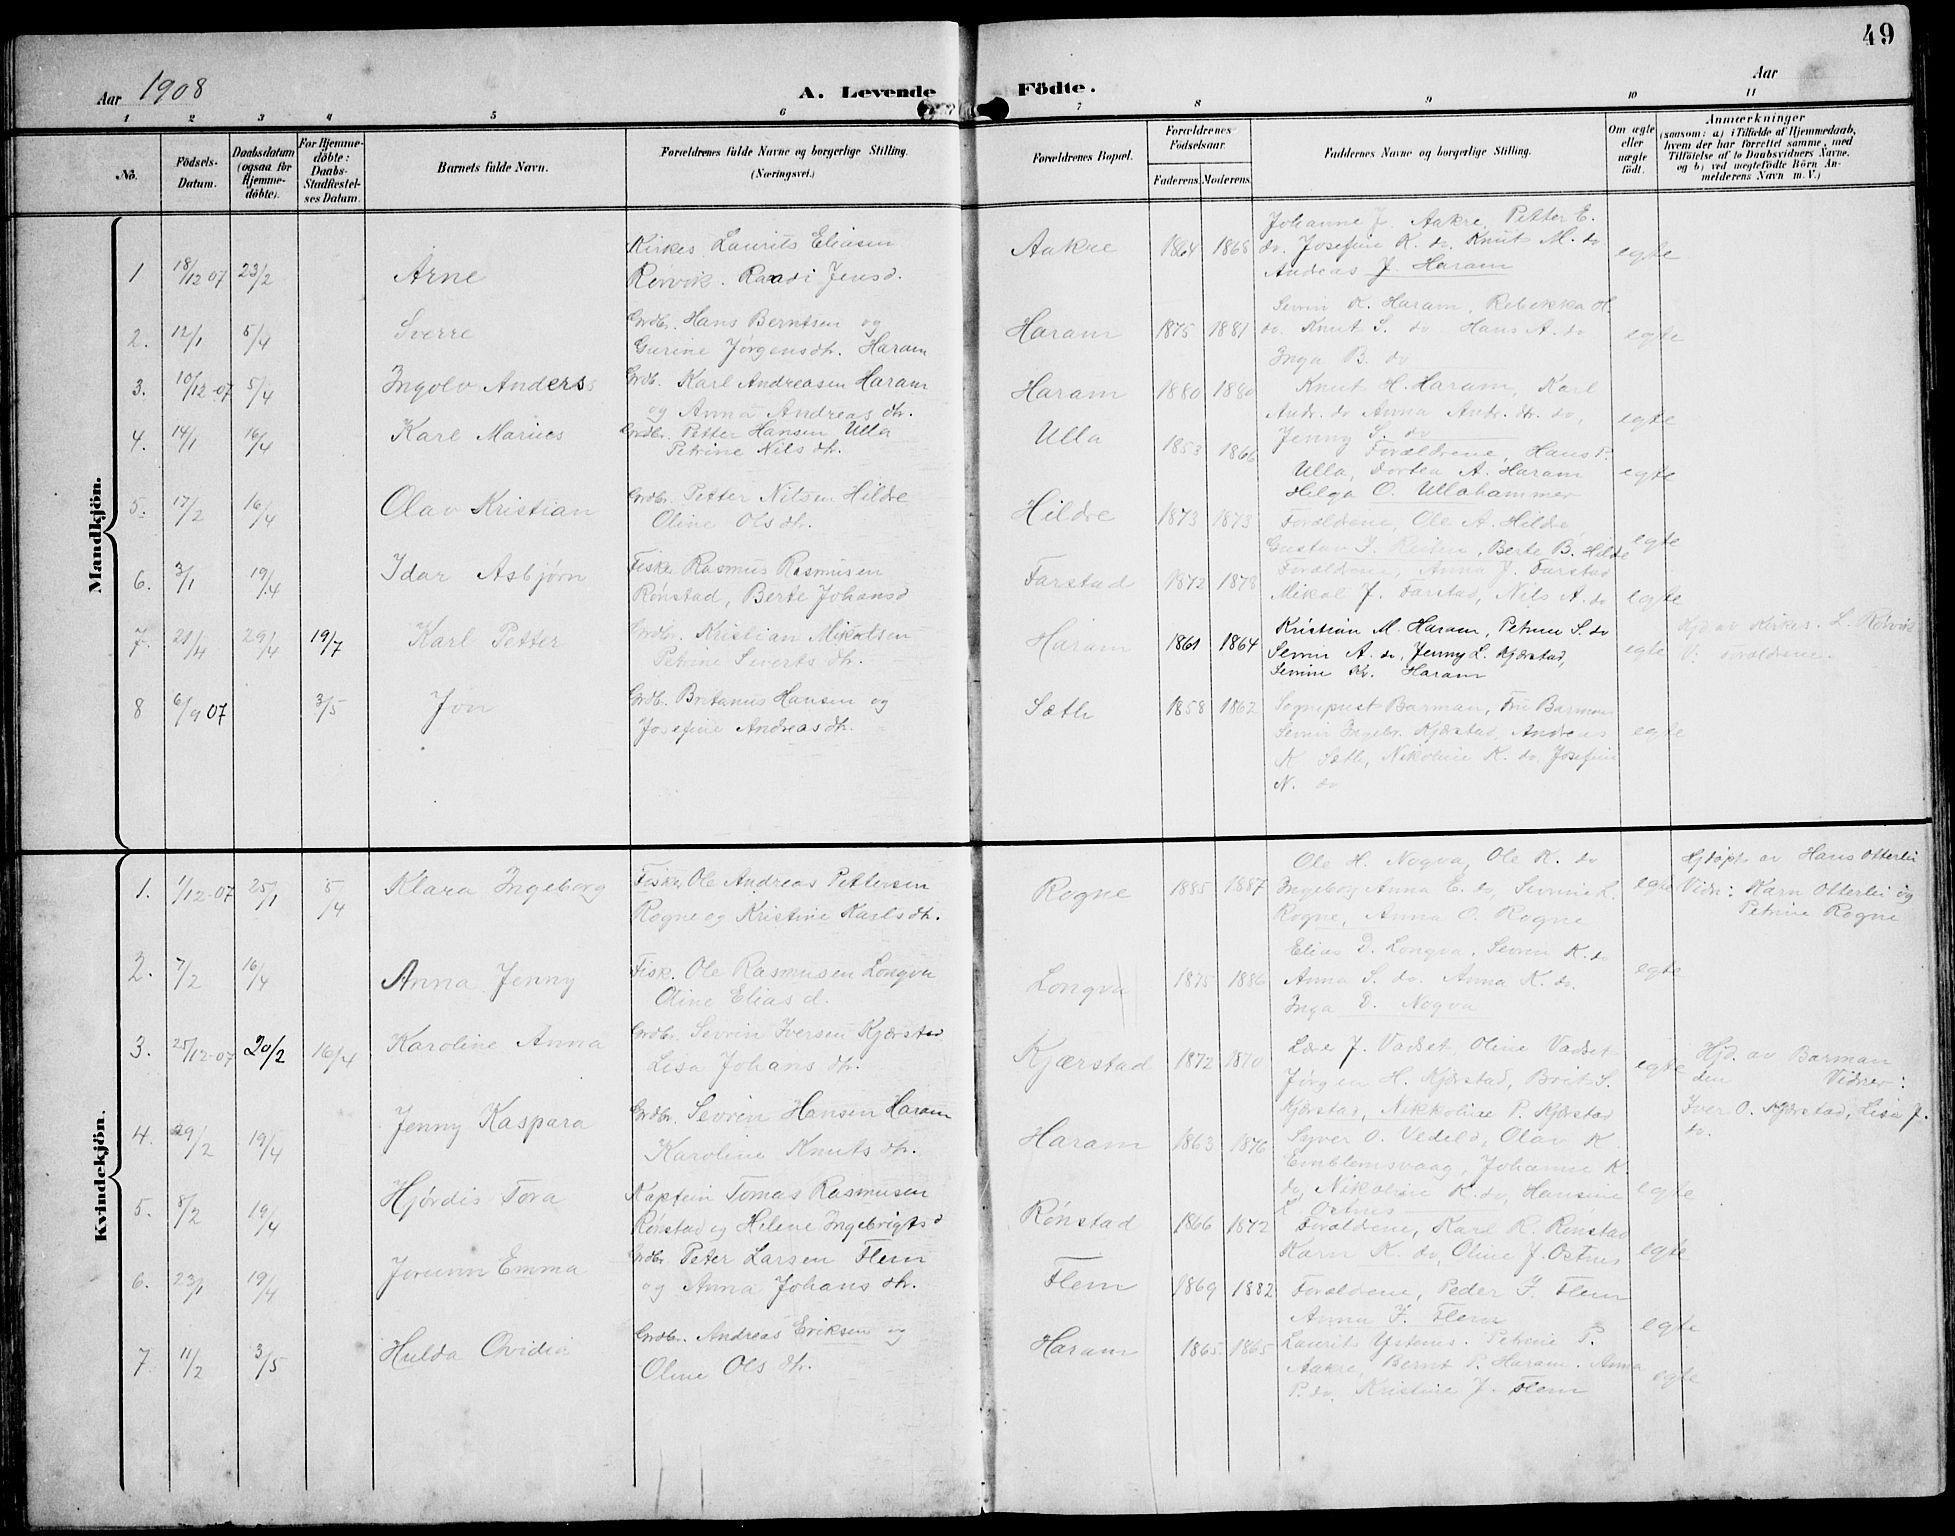 49
Aar 1908
A. Levende Födte.
Aar
1 2 3 4 5 6 7 8 9 10 11
No.
Födsels-Datum.
Daabsdatum (ogsaa for Hjemmedöbte).
For Hjemmedöbte: Daabs-Stadfæstelses Datum.
Barnets fulde Navn.
Forældrenes fulde Navne og borgerlige Stilling.
(Næringsvei.)
Forældrenes Bopæl.
Forældrenes Födselsaar.
Faderens. Moderens.
Faddernes Navne og borgerlige Stilling.
Om ægte eller uægte födt.
Anmærkninger
(saasom: a) i Tilfælde af Hjemmedaab, hvem der har forrettet samme, med Tilföielse af to Daabsvidners Navne, og b) ved uægtefödte Börn Anmelderens Navn m. V.)
Mandkjön.
1 18/12 07 23/2 Arne
Kirkes. Laurits Eliasen
Rørvik. Ragdi Jensd.
Aakre 1864 1868
Johanne J. Aakre, Petter E.
do. Josefine K. do. Knut M. do
Andreas J. Haram
egte
2. 12/1 5/4 Sverre
Grdbr. Hans Berntsen og
Gurine Jørgensdtr. Haram
Haram 1875 1881
Sevrin K. Haram, Rebekka H.
do. Knut S. do Hans A. do
Inga B. do
egte
3. 10/12-07 5/4 Ingolv Anders
Grdb. Karl Andreasen Haram
og Anna Andreas dtr.
Haram 1880 1880
Knut H. Haram, Karl
Andr. do Anna Andr. dtr. do,
Jenny S. do
egte
4. 14/1 16/4 Karl Marius
Grdbr. Petter Hansen Ulla
Petrine Nils dtr.
Ulla 1853 1866
Forældrene, Hans P.
Ulla, Dortea A. Haram
Helga O. Ullahammer
egte
5. 17/2 16/4 Olav Kristian
Grdbr. Petter Nilsen Hildre
Oline Ols dtr.
Hildre 1873 1873
Forældrene, Ole A. Hildre
Gustav J. Reiten, Berte B. Hildre
egte
6. 3/1 19/4 Idar Asbjørn
Fisker Rasmus Rasmusen
Rønstad, Berte Johansd
Farstad 1872 1878
Forældrene, Anna J. Farstad
Mikal J. Farstad, Nils A. do
egte
7. 21/4 29/4 19/7 Karl Petter
Grdbr. Kristian Mikalsen
Petrine Severts dtr.
Haram 1861 1864
Kristian M. Haram, Petrine S. do
Sevrin A. do, Jenny L. Kjærstad,
Sevrine Kr. Haram
egte
Hjd av Kirkes. L. Rørvik
V. forældrene.
8 6/9 07 3/5 Jon
Grdb. Britanus Hansen og
Josefine Andreas dtr.
Sæth 1858 1862
Sogneprest Barman, Fru Barman
Sevrin Ingebr. Kjærstad, Andreas
K Sæth, Nikoline K. do, Josefine
N. do
egte
Kvindekjön.
1. 1/12-07 25/1 5/4 Klara Ingeborg
Fisker Ole Andreas Pettersen
Rogne og Kristine Karlsdtr.
Rogne 1885 1887
Ole H. Nogva, Ole K. do
Ingeborg Anna E. do, Sevrine L.
Rogne, Anna O. Rogne
egte
Hjdøpt av Hans Otterlei
Vidn: Karn Otterlei og
Petrine Rogne
2. 7/2 16/4 Anna Jenny
Fisk. Ole Rasmusen Longva
Oline Elias d.
Longva 1875 1886
Elias D. Longva, Sevrin K. do
Anna S. do. Anna K. do.
Inga D. Nogva
egte
3. 25/12-07 20/2 16/4 Karoline Anna
Grdbr. Sevrin Iversen Kjærstad
Lisa Johans dtr.
Kjærstad 1872 1870
Lære J. Vadset Oline Vadset
Jørgen H. Kjærstad, Brit S.
Kjærstad, Nikkoline P. Kjærstad
egte
Hjd. av Barman
den Vidner:
Iver O. Kjærstad, Lisa J.
do.
4. 29/2 19/4 Jenny Kaspara
Grdbr. Sevrin Hansen Haram
Karoline Knuts dtr.
Haram 1863 1876
Syver O. Vedeld, Olav K
Emblemsvaag, Johanne K.
do, Nikoline K. do, Hansine
L Ostnes
egte
5. 8/2 19/4 Hjørdis Tora
Kaptein Tomas Rasmusen
Rønstad og Helene Ingebrigts d
Rønstad 1866 1872
Forældrene, Karl R. Rønstad
Karn K. do, Oline J. Ostnes
egte
6. 23/1 19/4 Jorunn Emma
Grdbr Peter Larsen Flem
og Anna Johans dtr.
Flem 1869 1882
Forældrene, Peder J. Flem
Anna J. Flem
egte
7. 11/2 3/5 Hulda Ovidia
Grdbr. Andreas Eriksen og
Oline Ols dtr.
Haram 1865 1865
Laurits Ystenes. Petrine P.
Aakre, Bernt P. Haram. Anna
P. do, Kristine J. Flem
egte